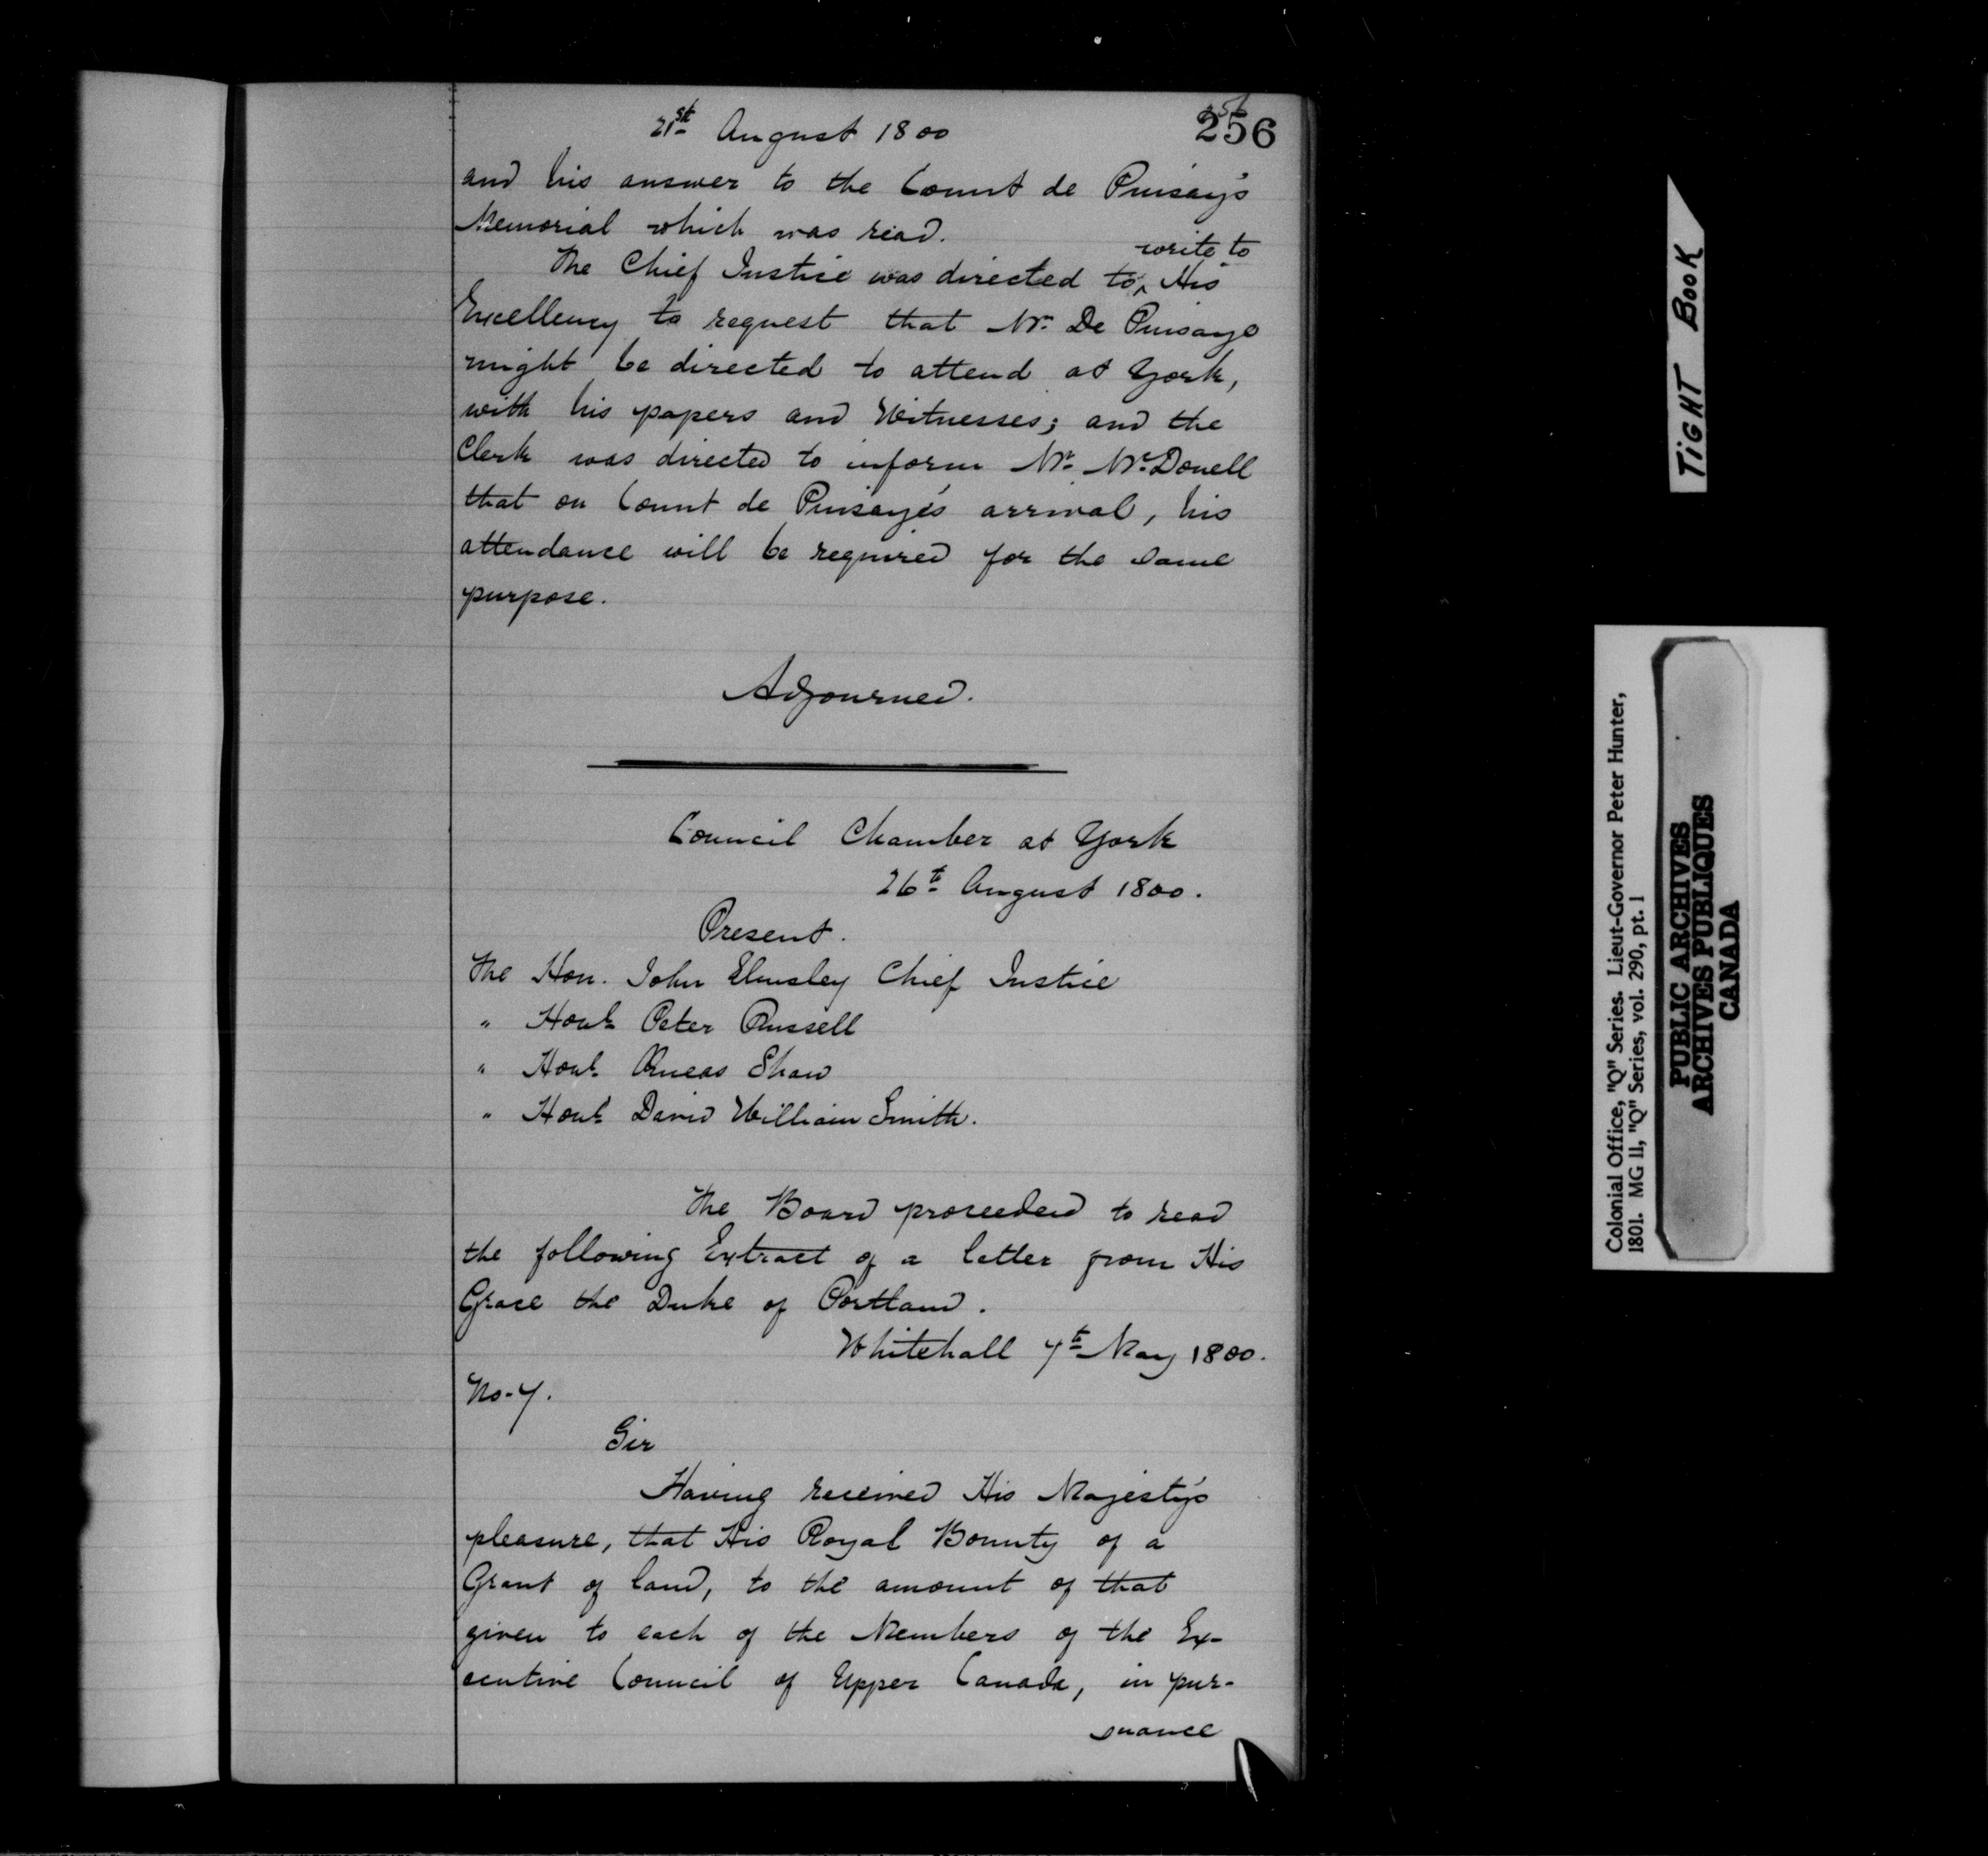 21st August 1800
256
and his answer to the Count de Puisay's
Memorial which was read.
write to
The Chief Justice was directed to ^ His
Excellency to request that Mr. De Puisaye
might be directed to attend at York,
with his papers and Witnesses; and the
Clerk was directed to inform Mr. McDonell
that on Count de Puisaye's arrival, his
attendance will be required for the same
purpose.
Adjourned.
Council Chamber at York
26th August 1800.
Present.
The Hon. John Elmsley Chief Justice
" Honble Peter Russell
" Honble Æneas Shaw
" Honble David William Smith.
The Board proceeded to read
the following Extract of a letter from His
Grace the Duke of Portland.
Whitehall 7th May 1800.
No-7.
Sir
Having received His Majesty's
pleasure, that His Royal Bounty of a
Grant of land, to the amount of that
given to each of the Members of the Ex-
ecutive Council of Upper Canada, in pur-
suance
TIGHT BOOK
Colonial Office, "Q" Series. Lieut-Governor Peter Hunter,
1801. MG 11, "Q" Series, vol. 290, pt. 1
PUBLIC ARCHIVES
ARCHIVES PUBLIQUES
CANADA